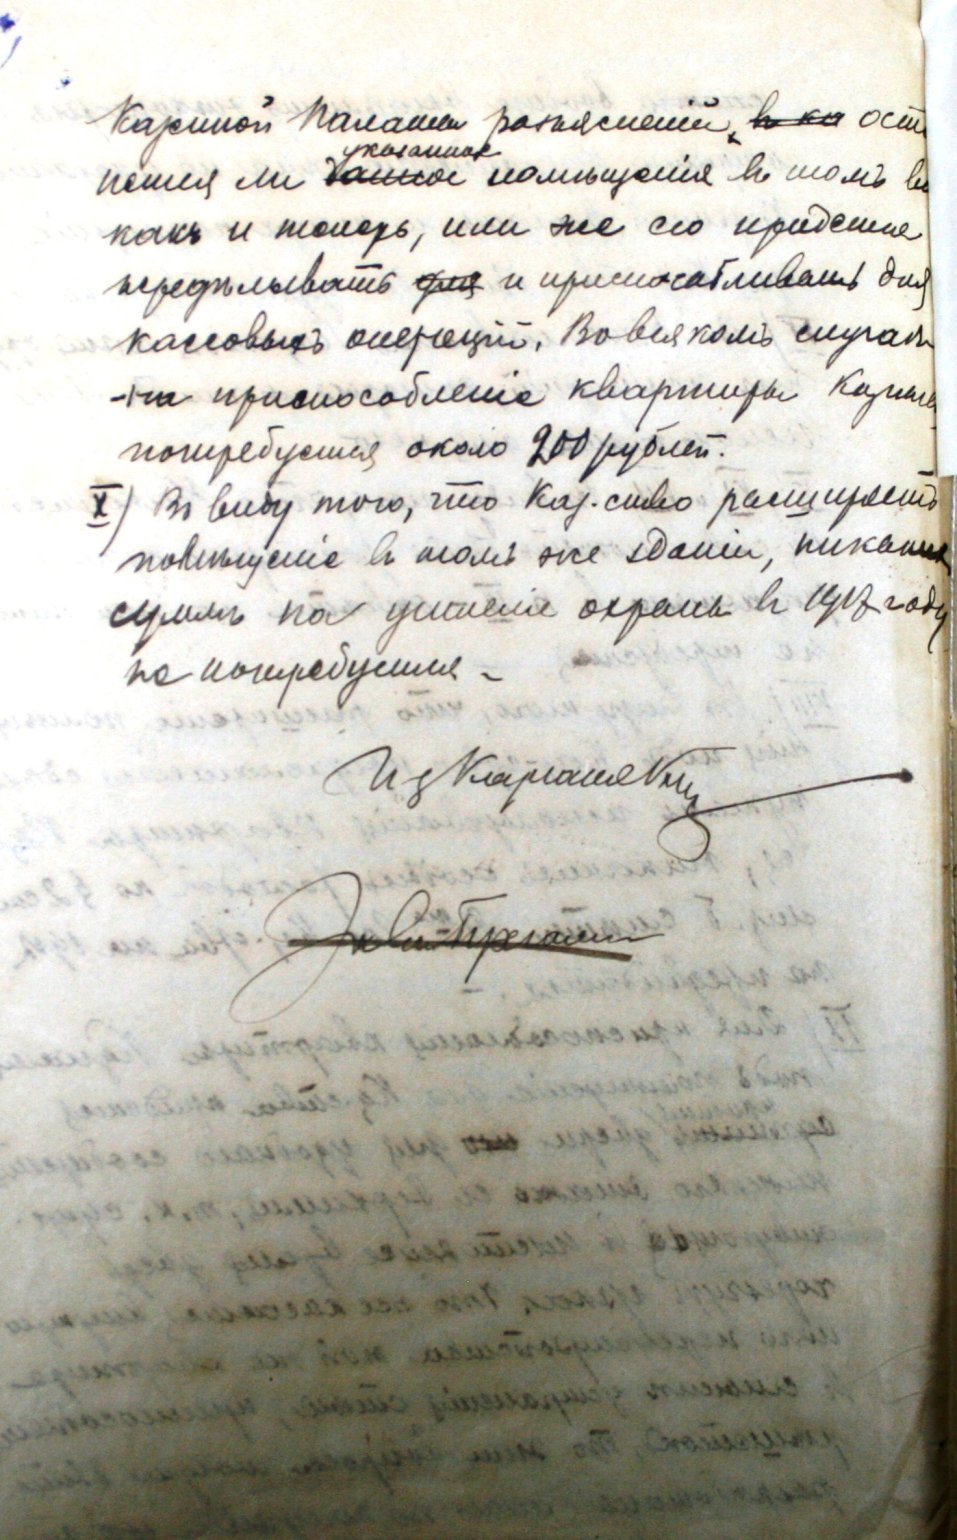 Казенной Палаты разъясненій, ост
указанное
нется ли помѣщенія въ томъ ви
какъ и теперь, или же его придется
передѣлывать для и приспосабливать для
кассовыхъ операцій. Во всякомъ случаѣ
на приспособленіе квартиры Казнач
потребуется около 200 рублей.
X) Въ виду того, что Каз-ство расширяетъ
помѣщеніе въ томъ же зданіи, никакихъ
суммъ на усиленіе охраны въ 1917 году
не потребуется -